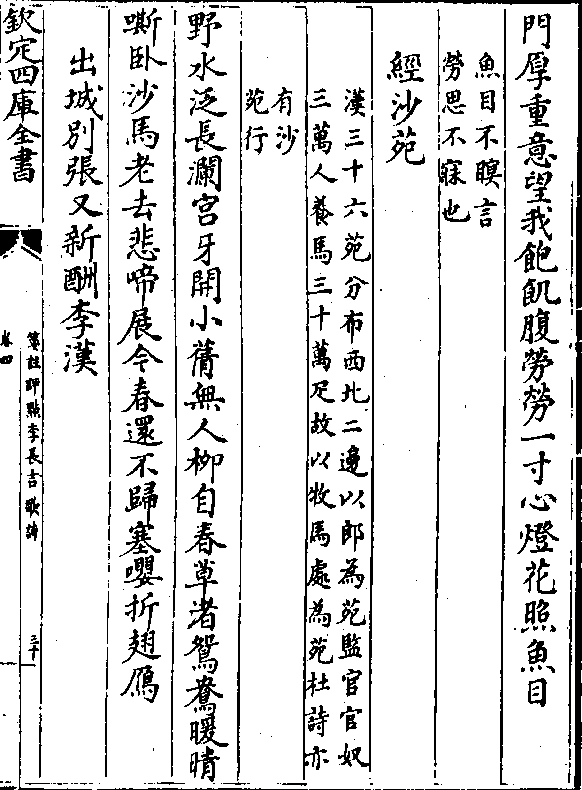 門厚重意望我飽飢腹勞勞一寸心燈花照魚目
魚目不瞑言
勞思不寐也
經沙苑
漢三十六苑分布西北二邊以郎為苑監官官奴
三萬人養馬三十萬疋故以牧馬處為苑杜詩亦
有沙
苑行
野水泛長瀾宫牙開小蒨無人柳自春草渚鴛鴦暖晴
嘶卧沙馬老去悲啼展今春還不歸塞嘤折翅鴈
出城别張又新酬李漢
欽定四庫全書
箋註評點李長吉歌詩
卷四
三十